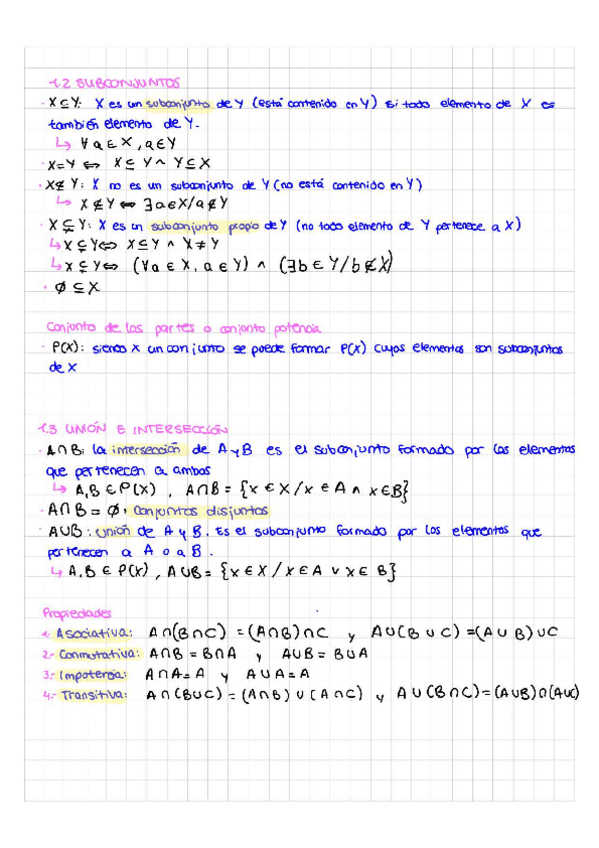 1.2 SUBCONJUNTOS
· X⊆Y: X es un subconjunto de Y (está contenido en Y) si todo elemento de X es
también elemento de Y.
↳ ∀a∈X, a∈Y
· X=Y ⇔ X⊆Y ∧ Y⊆X
· X⊈Y: X no es un subconjunto de Y (no está contenido en Y)
↳ X⊈Y ⇔ ∃a∈X/a∉Y
· X⊊Y: X es un subconjunto propio de Y (no todo elemento de Y pertenece a X)
↳ X⊊Y ⇔ X⊆Y ∧ X≠Y
↳ X⊊Y ⇔ (∀a∈X, a∈Y) ∧ (∃b∈Y/b∉X)
· ∅⊆X
Conjunto de las partes o conjunto potencia
· P(X): siendo X un conjunto se puede formar P(X) cuyos elementos son subconjuntos
de X
1.3 UNIÓN E INTERSECCIÓN
· A∩B: la intersección de A y B es el subconjunto formado por los elementos
que pertenecen a ambas
↳ A,B∈P(X), A∩B={x∈X/x∈A ∧ x∈B}
· A∩B=∅, conjuntos disjuntos
· A∪B: unión de A y B. Es el subconjunto formado por los elementos que
pertenecen a A o a B.
↳ A,B∈P(X), A∪B={x∈X/x∈A ∨ x∈B}
Propiedades
1.- Asociativa: A∩(B∩C)=(A∩B)∩C y A∪(B∪C)=(A∪B)∪C
2.- Conmutativa: A∩B=B∩A y A∪B=B∪A
3.- Impotencia: A∩A=A y A∪A=A
4.- Transitiva: A∩(B∪C)=(A∩B)∪(A∩C) y A∪(B∩C)=(A∪B)∩(A∪C)